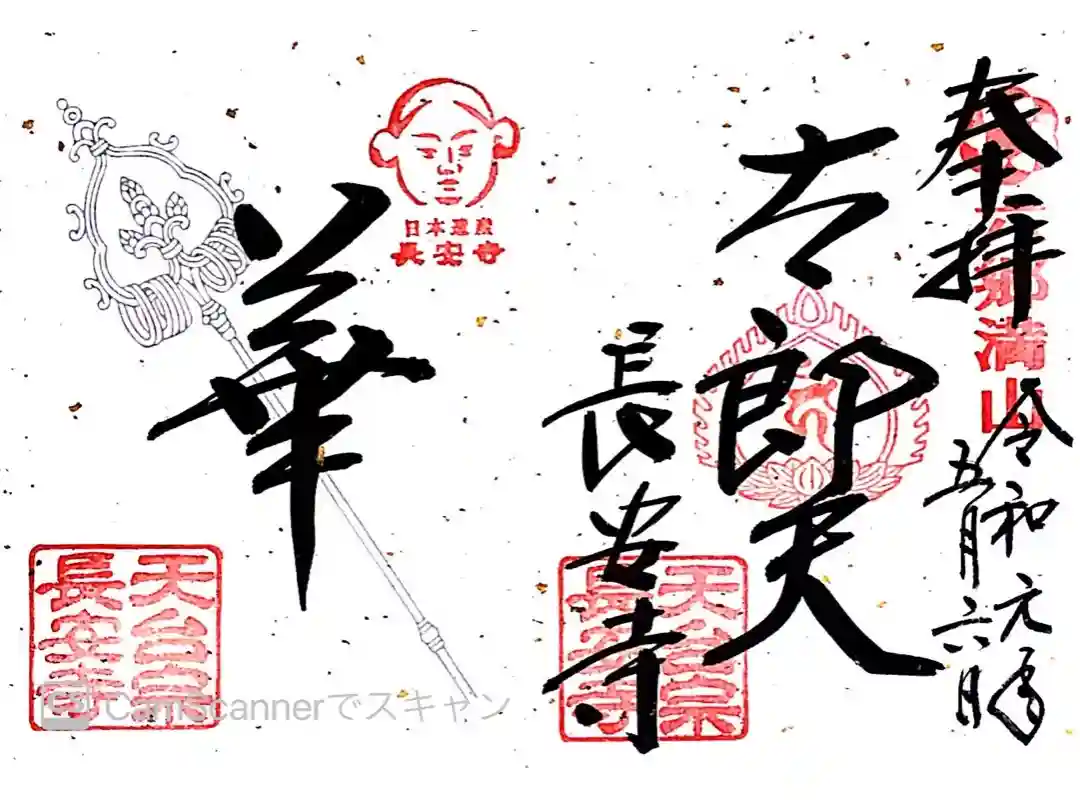 奉拝
六郷満山
令和元年
五月六日
太郎天
長安寺
天台宗
長安寺
日本遺産
長安寺
華
天台宗
長安寺
CamScannerでスキャン